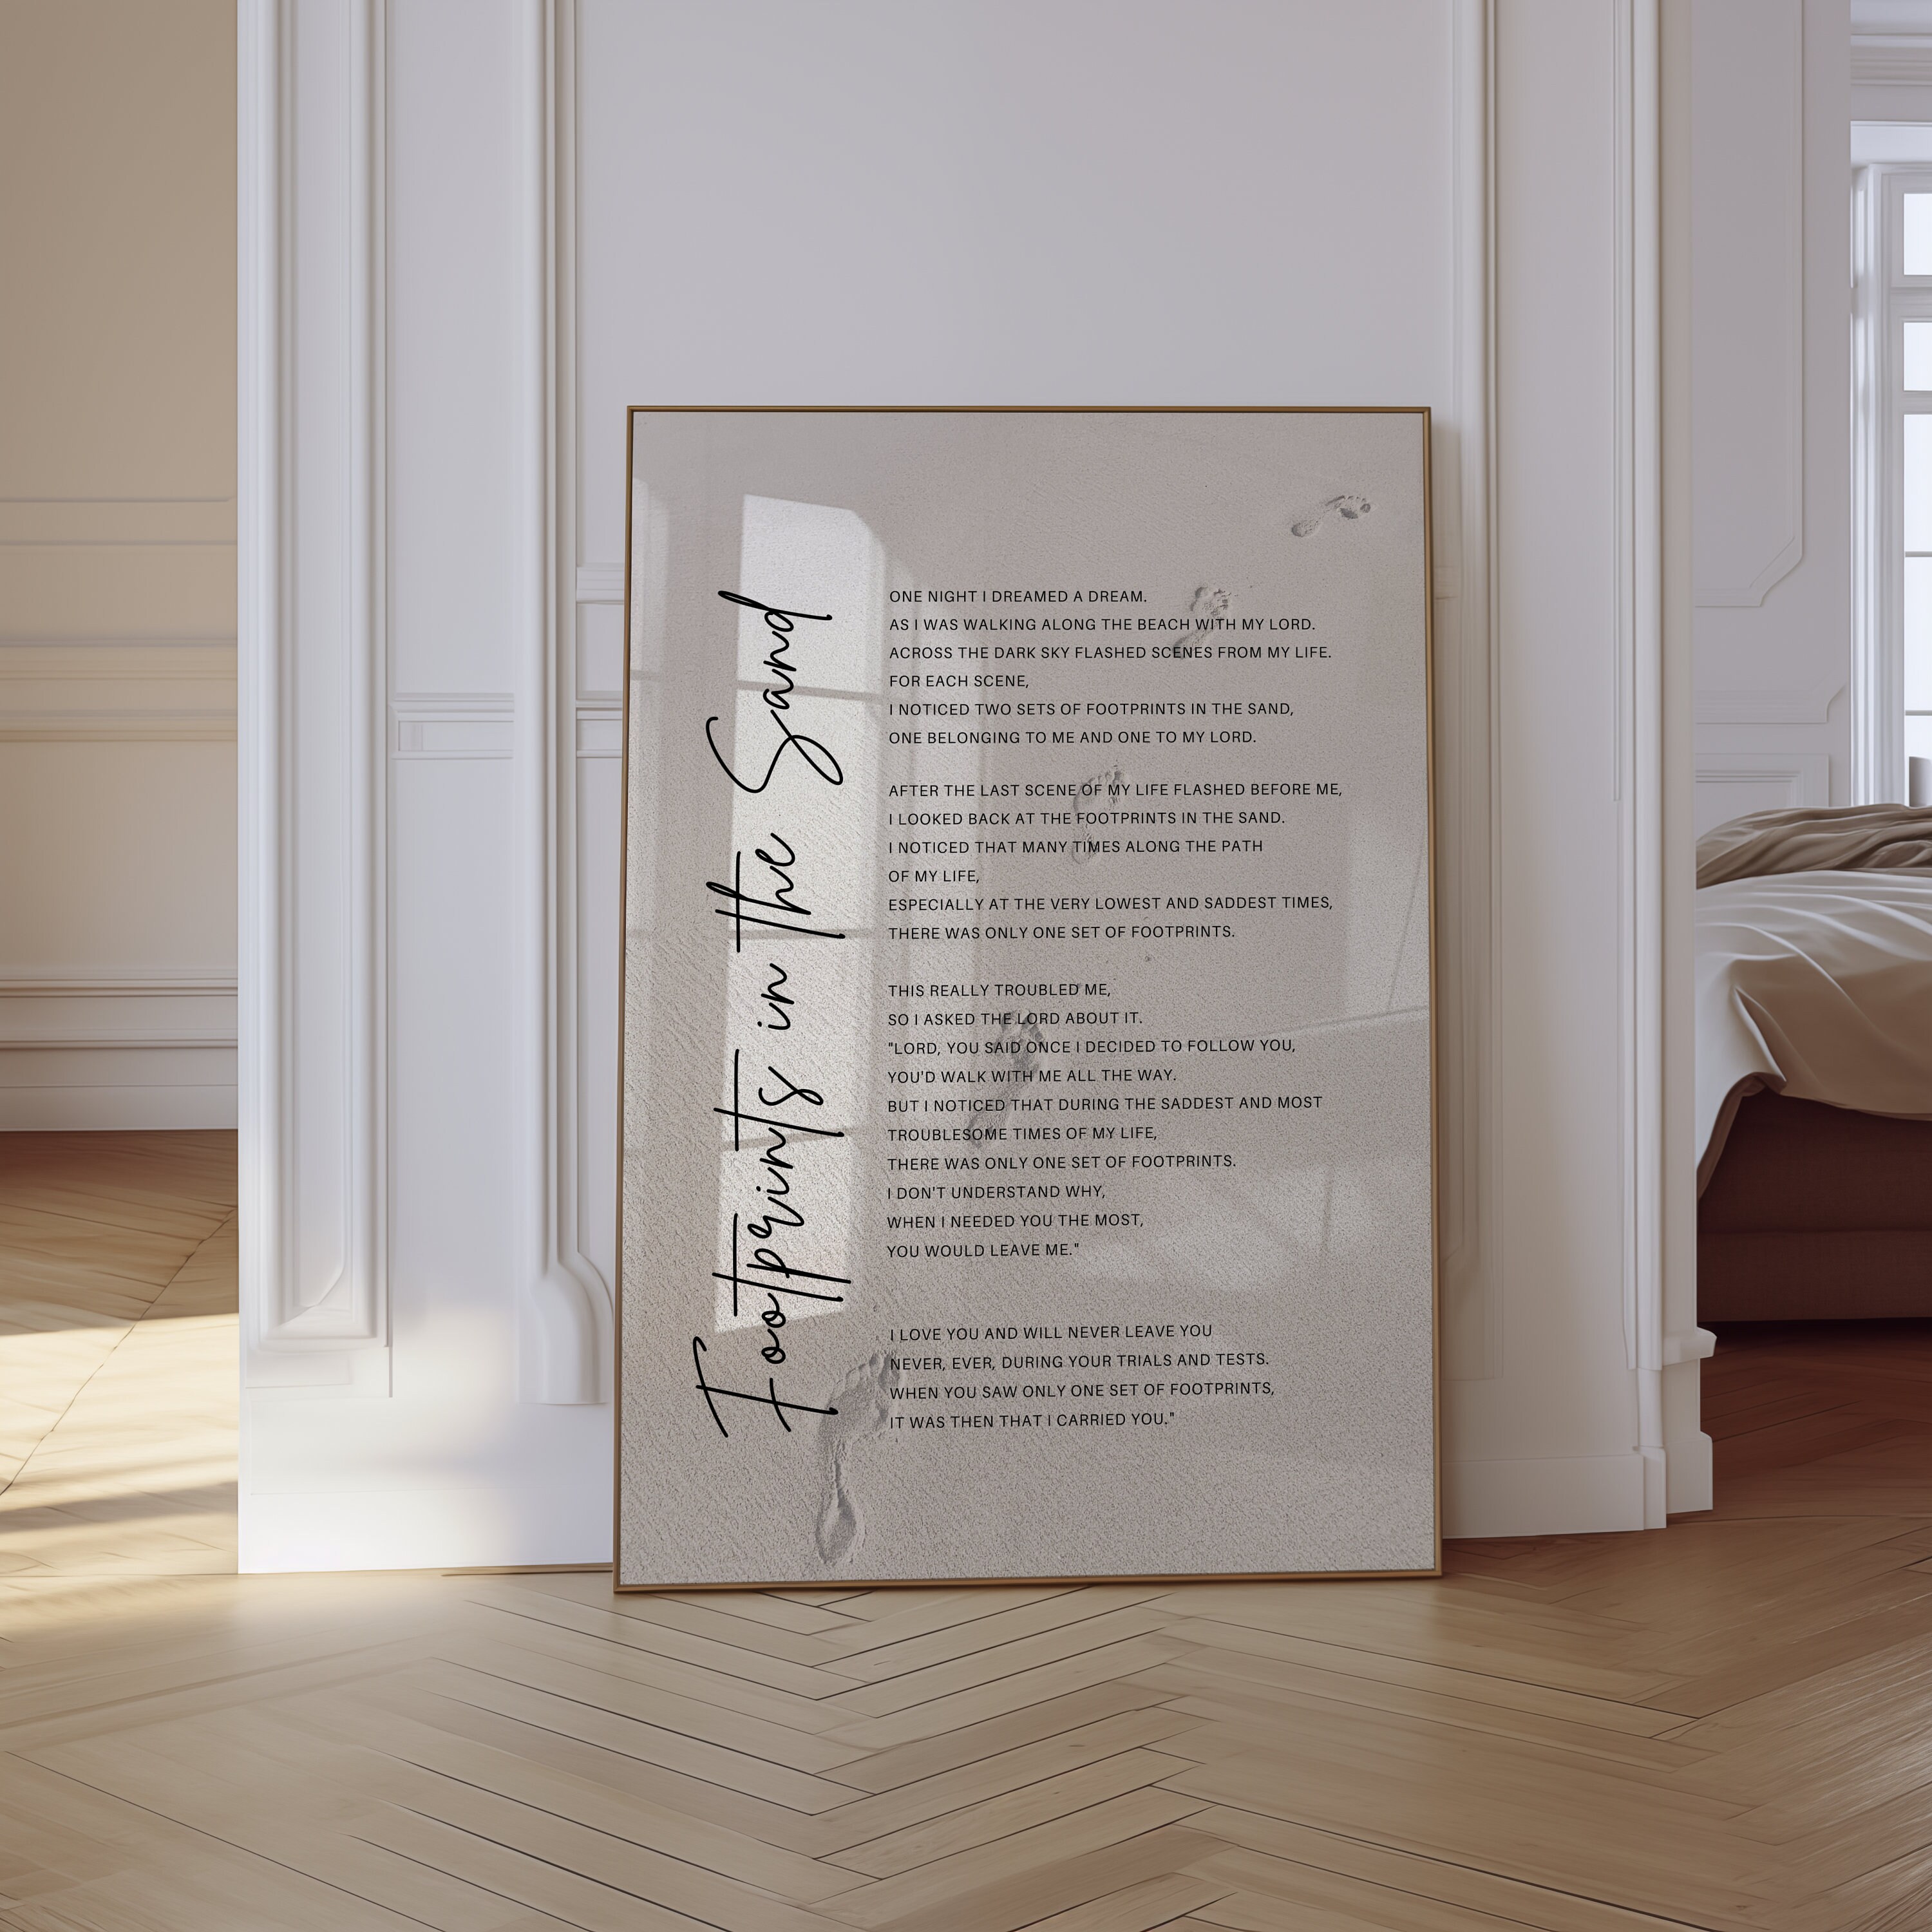 Footprints in the Sand
ONE NIGHT I DREAMED A DREAM.
AS I WAS WALKING ALONG THE BEACH WITH MY LORD.
ACROSS THE DARK SKY FLASHED SCENES FROM MY LIFE.
FOR EACH SCENE,
I NOTICED TWO SETS OF FOOTPRINTS IN THE SAND,
ONE BELONGING TO ME AND ONE TO MY LORD.
AFTER THE LAST SCENE OF MY LIFE FLASHED BEFORE ME,
I LOOKED BACK AT THE FOOTPRINTS IN THE SAND.
I NOTICED THAT MANY TIMES ALONG THE PATH
OF MY LIFE,
ESPECIALLY AT THE VERY LOWEST AND SADDEST TIMES,
THERE WAS ONLY ONE SET OF FOOTPRINTS.
THIS REALLY TROUBLED ME,
SO I ASKED THE LORD ABOUT IT.
"LORD, YOU SAID ONCE I DECIDED TO FOLLOW YOU,
YOU'D WALK WITH ME ALL THE WAY.
BUT I NOTICED THAT DURING THE SADDEST AND MOST
TROUBLESOME TIMES OF MY LIFE,
THERE WAS ONLY ONE SET OF FOOTPRINTS.
I DON'T UNDERSTAND WHY,
WHEN I NEEDED YOU THE MOST,
YOU WOULD LEAVE ME."
I LOVE YOU AND WILL NEVER LEAVE YOU
NEVER, EVER, DURING YOUR TRIALS AND TESTS.
WHEN YOU SAW ONLY ONE SET OF FOOTPRINTS,
IT WAS THEN THAT I CARRIED YOU."